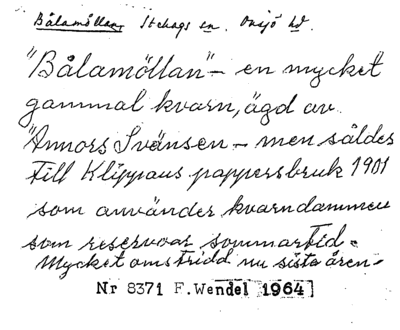 Bålamöllan, Stehags sn. Onsjö hd.
"Bålamöllan" – en mycket
gammal kvarn, ägd av
"Annors Svänsen – men såldes
till Klippans pappersbruk 1901
som använder kvarndammen
som reservoar sommartid.
Mycket omstridd nu sista åren.
Nr 8371 F.Wendel 1964]